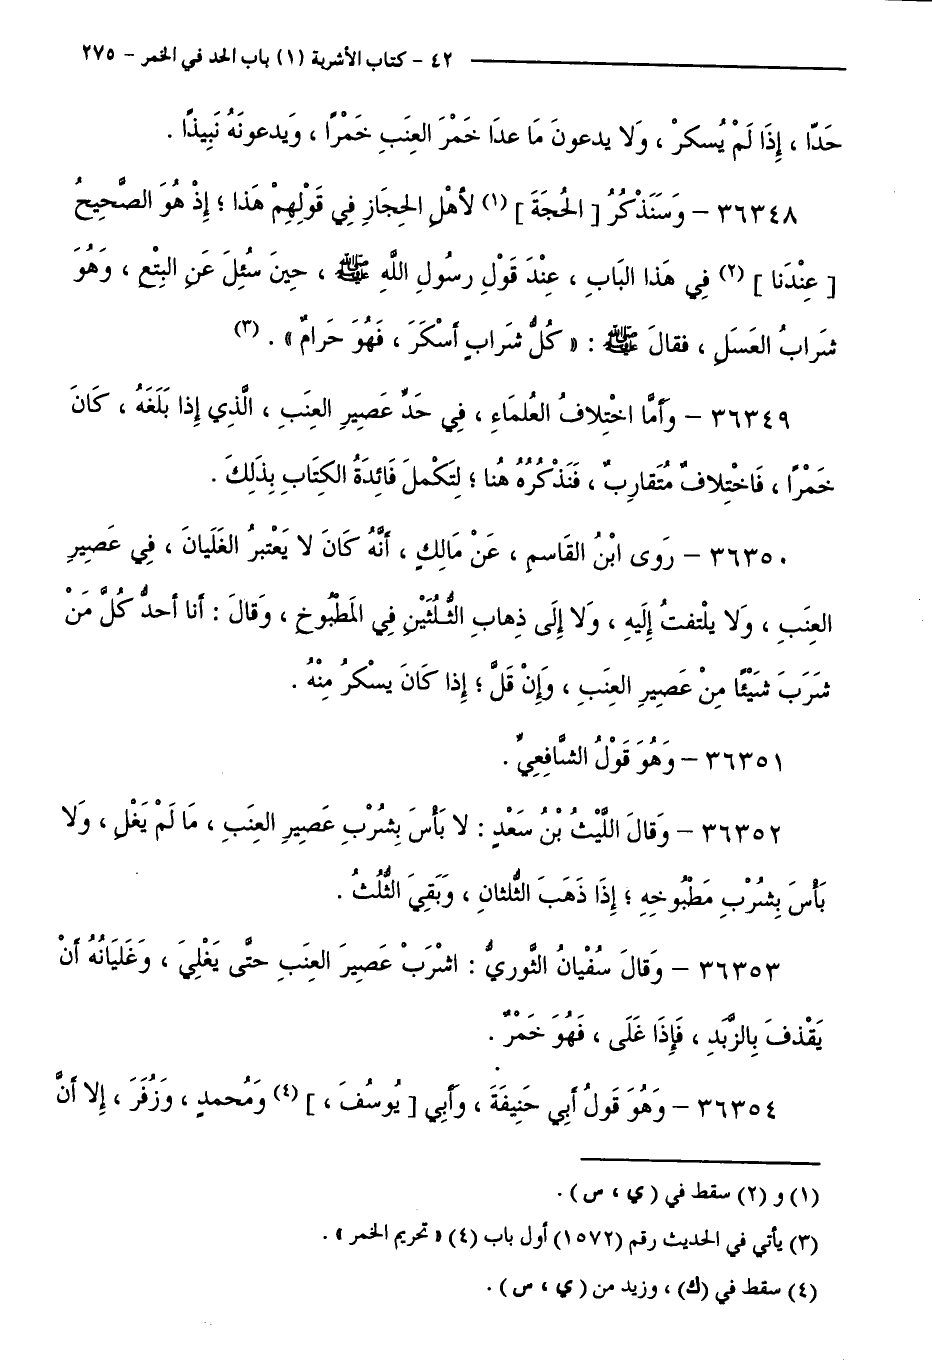 ٤٢ - كتاب الأشربة (١) باب الحد في الخمر - ٢٧٥
حَدًّا ، إِذَا لَمْ يُسكرْ ، وَلا يدعونَ مَا عدا خَمْرَ العِنَبِ خَمْرًا ، وَيدعونَهُ نَبِيذًا .
٣٦٣٤٨ – وَسَنَذْكُرُ [ الحُجَةَ ] (١) لأَهْلِ الحِجَازِ فِي قَوْلِهِمْ هَذا ؛ إِذْ هُوَ الصَّحِيحُ
[ عِنْدَنا ] (٢) فِي هَذا البَابِ ، عِنْدَ قَوْلِ رسُولِ اللَّهِ ﷺ ، حِينَ سُئِلَ عَنِ البِتْعِ ، وَهُوَ
شرَابُ العَسَلِ ، فقالَ ﷺ : « كُلُّ شرَابٍ أَسْكَرَ ، فَهُوَ حَرامٌ » . (٣)
٣٦٣٤٩ – وَأَمَّا اخْتِلافُ العُلمَاءِ ، فِي حَدِّ عَصِيرِ العِنَبِ ، الَّذِي إِذا بَلَغَهُ ، كَانَ
خَمْرًا ، فَاخْتِلافٌ مُتَقارِبٌ ، فَنَذْكُرُهُ هُنا ؛ لِتَكْملَ فَائِدَةُ الكِتَابِ بِذَلِكَ .
٣٦٣٥٠ – رَوى ابْنُ القَاسمِ ، عَنْ مَالِكٍ ، أَنَّهُ كَانَ لا يَعْتبرُ الغَلَيانَ ، فِي عَصِيرِ
العِنَبِ ، وَلا يلْتفتُ إِلَيهِ ، وَلا إِلَى ذِهابِ الثُّلُثَيْنِ فِي المَطْبُوخِ ، وَقالَ : أَنا أحدُّ كُلَّ مَنْ
شرَبَ شَيْئًا مِنْ عَصِيرِ العِنَبِ ، وَإِنْ قَلَّ ؛ إِذا كَانَ يسْكرُ مِنْهُ .
٣٦٣٥١ – وَهُوَ قَوْلُ الشَّافِعِيِّ .
٣٦٣٥٢ – وَقالَ اللَّيْثُ بْنُ سَعْدٍ : لا بَأْسَ بِشُرْبِ عَصِيرِ العِنَبِ ، مَا لَمْ يَغْلِ ، وَلا
بَأْسَ بِشُرْبِ مَطْبُوخِهِ ؛ إِذَا ذَهَبَ الثُّلثانِ ، وَبَقِيَ الثُّلُثُ .
٣٦٣٥٣ – وَقالَ سُفْيانُ الثَّوريُّ : اشْرَبْ عَصِيرَ العِنَبِ حتَّى يَغْلِيَ ، وَغَلَيَانُهُ أَنْ
يَقْذفَ بِالزَّبَدِ ، فَإِذَا غَلَى ، فَهُوَ خَمْرٌ .
٣٦٣٥٤ – وَهُوَ قَولُ أَبِي حَنِيفَةَ ، وَأَبِي [ يُوسُفَ ، ] (٤) وَمُحمدٍ ، وَزُفَرَ ، إِلا أَنَّ
(١) و (٢) سقط في ( ي ، س ) .
(٣) يأتي في الحديث رقم (١٥٧٢) أول باب (٤) « تحريم الخمر » .
(٤) سقط في (ك) ، وزيد من ( ي ، س ) .